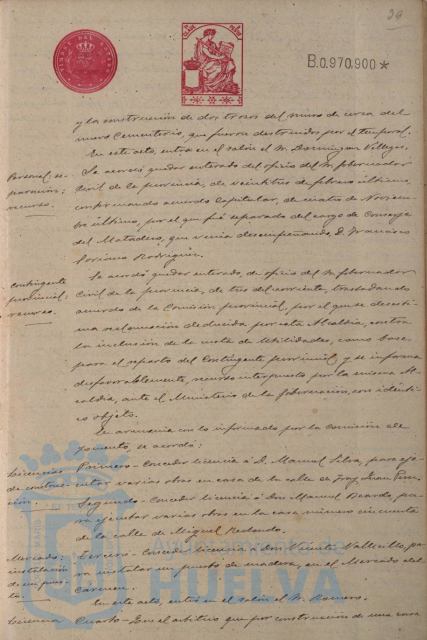 29
B.0.970.900*
y la construcción de dos trozos del muro de cerca del
nuevo Cementerio, que fueron destruidos por el temporal.
En este acto, entra en el salón el Sr. Domínguez Vallejo.
Se acordó quedar enterado del oficio del Sr. Gobernador
Civil de la provincia, de veintitres de febrero último,
confirmando acuerdo Capitular, de cuatro de Noviem-
bre último, por el que fué separado del cargo de Conserje
del Matadero, que venia desempeñando, D. Francisco
Rodriguez.
Contingente
provincial;
recurso.
Se acordó quedar enterado, de oficio del Sr. Gobernador
Civil de la provincia, de tres del corriente, trasladando
acuerdo de la Comisión provincial, por el que se desesti-
ma reclamación deducida por esta Alcaldia, contra
la inclusión de la mota de Utilidades, como base
para el reparto del Contingente provincial y se informa
desfavorablemente, recurso interpuesto por la misma Al-
caldia, ante el Ministerio de la Gobernación, con idénti-
co objeto.
De armonia con lo informado por la Comisión de
Fomento, se acordó:
Licencias
de construc-
ción.
Primero - Conceder licencia á D. Manuel Silva, para eje-
cutar varias obras en casa de la calle de Fray Juan Perez.
Segundo - Conceder licencia á Don Manuel pa-
ra ejecutar varias obras en la casa número cincuenta
de la calle de Miguel Redondo.
Mercado;
instalación
de un pues-
to.
Tercero - Conceder licencia á don Vicente Vallecillo, pa-
ra instalar un puesto de madera, en el Mercado del
Carmen.
En este acto, entra en el salón el Sr. Romero.
Licencia
Cuarto - En el arbitrio que por construcción de una casa
Ayuntamiento de
HUELVA